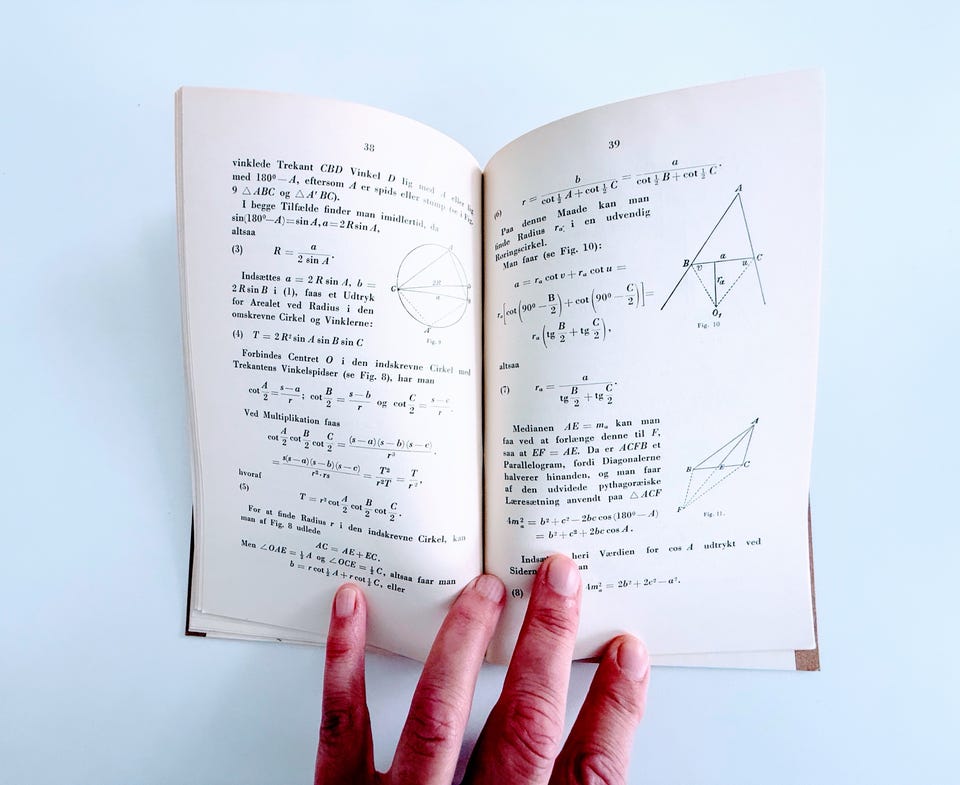 38
vinklede Trekant CBD Vinkel D lig med A eller lig
med 180⁰—A, eftersom A er spids eller stump (se Fig.
9 △ABC og △A'BC).
I begge Tilfælde finder man imidlertid, da
sin(180⁰—A)=sin A, a=2R sin A,
altsaa
(3) R = a / (2 sin A).
Indsættes a = 2R sin A, b =
2R sin B i (1), faas et Udtryk
for Arealet ved Radius i den
omskrevne Cirkel og Vinklerne:
(4) T = 2R² sin A sin B sin C
Forbindes Centret O i den indskrevne Cirkel med
Trekantens Vinkelspidser (se Fig. 8), har man
cot A/2 = (s—a)/r ; cot B/2 = (s—b)/r og cot C/2 = (s—c)/r .
Ved Multiplikation faas
cot A/2 cot B/2 cot C/2 = (s—a)(s—b)(s—c) / r³ .
= s(s—a)(s—b)(s—c) / (r³·rs) = T²/(r²T) = T/r² ,
hvoraf
(5) T = r² cot A/2 cot B/2 cot C/2 .
For at finde Radius r i den indskrevne Cirkel, kan
man af Fig. 8 udlede
AC = AE + EC.
Men ∠OAE = ½A og ∠OCE = ½C, altsaa faar man
b = r cot ½A + r cot ½C, eller
A
2R
C
a
B
A'
Fig. 9
39
(6) r = b / (cot ½A + cot ½C) = a / (cot ½B + cot ½C) .
Paa denne Maade kan man
finde Radius rₐ i en udvendig
Røringscirkel.
Man faar (se Fig. 10):
a = rₐ cot v + rₐ cot u =
rₐ[cot(90⁰ — B/2) + cot(90⁰ — C/2)] =
rₐ(tg B/2 + tg C/2),
altsaa
(7) rₐ = a / (tg B/2 + tg C/2) .
A
B
a
C
v
u
rₐ
O₁
Fig. 10
Medianen AE = mₐ kan man
faa ved at forlænge denne til F,
saa at EF = AE. Da er ACFB et
Parallelogram, fordi Diagonalerne
halverer hinanden, og man faar
af den udvidede pythagoræiske
Læresætning anvendt paa △ACF
4mₐ² = b² + c² — 2bc cos(180⁰ — A)
= b² + c² + 2bc cos A.
A
B
E
C
F
Fig. 11.
heri Værdien for cos A udtrykt ved
(8) 4mₐ² = 2b² + 2c² — a².